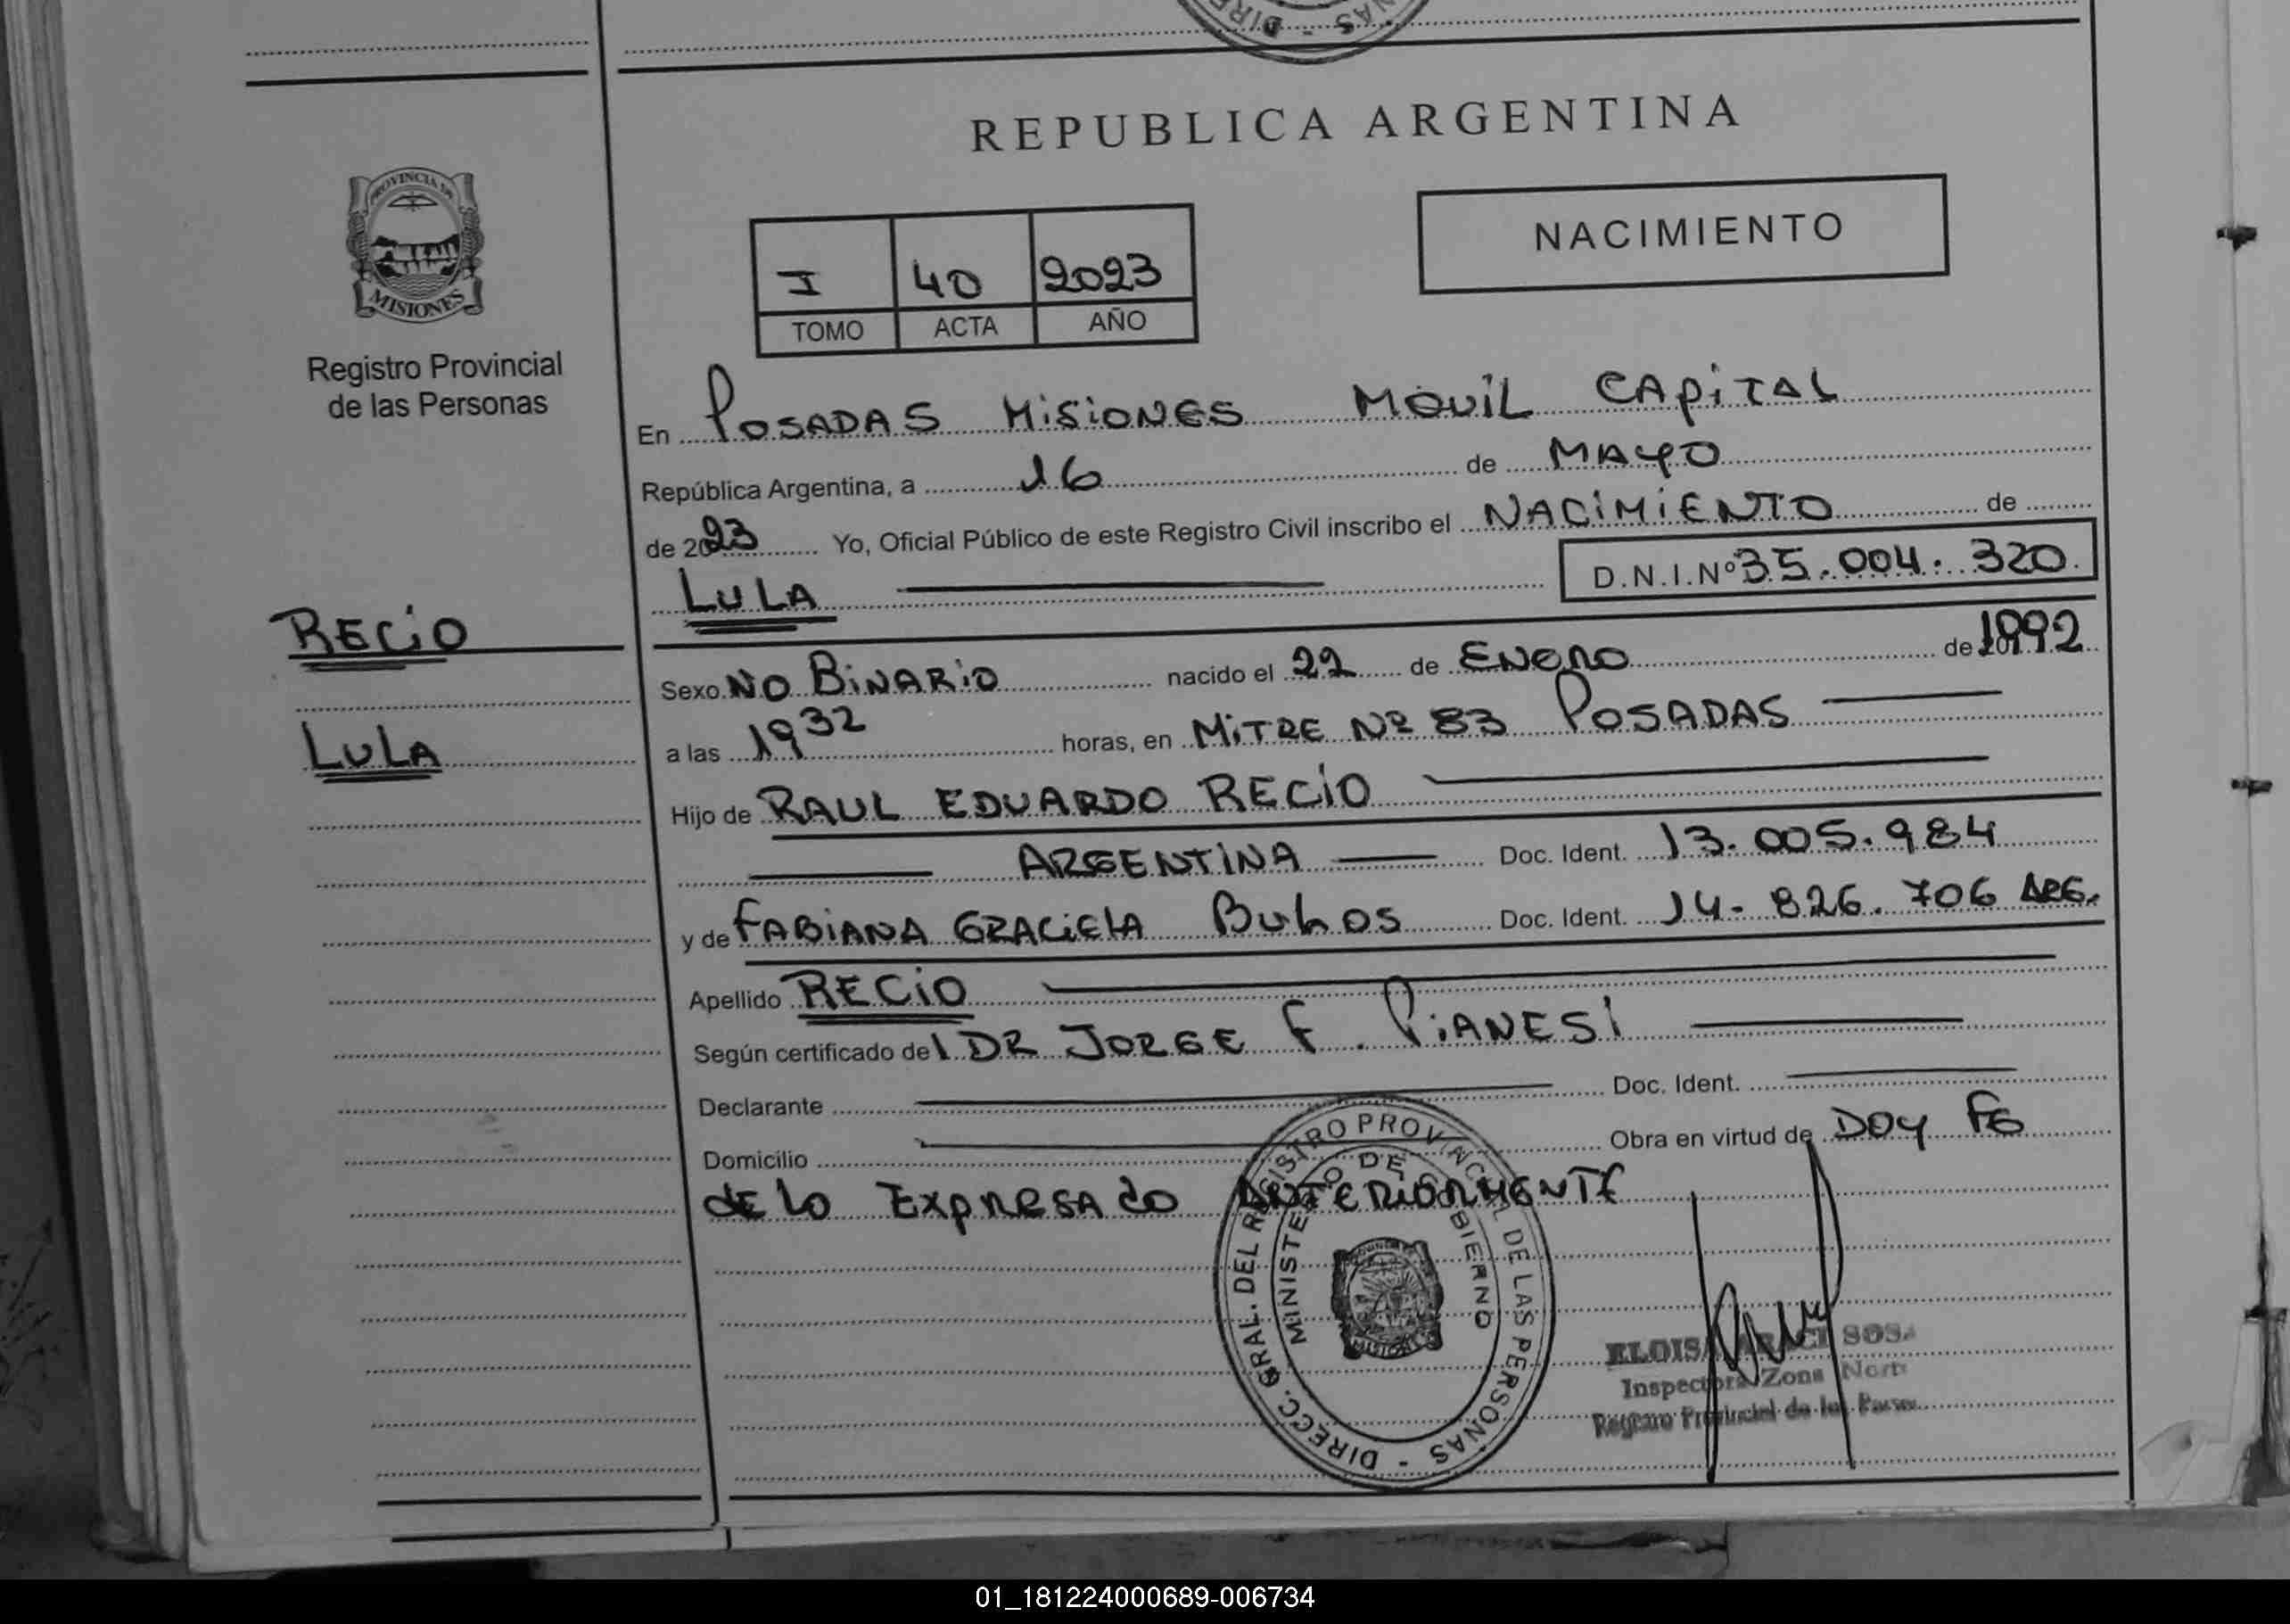 REPUBLICA ARGENTINA
PROVINCIA DE
MISIONES
Registro Provincial
de las Personas
NACIMIENTO
I 40 2023
TOMO ACTA AÑO
En POSADAS MISIONES MOVIL CAPITAL
República Argentina, a 16 de MAYO
de 2023 Yo, Oficial Público de este Registro Civil inscribo el NACIMIENTO de
LULA D.N.I.Nº 35.004.320
RECIO
LULA
Sexo NO BINARIO nacido el 22 de ENERO de 1992
a las 1932 horas, en MITRE Nº 83 POSADAS
Hijo de RAUL EDUARDO RECIO
ARGENTINA Doc. Ident. 13.005.984
y de FABIANA GRACIELA Doc. Ident. 14.826.706 ARG.
Apellido RECIO
Según certificado del DR JORGE F. PIANESI
Declarante Doc. Ident.
Domicilio Obra en virtud de DOY FE
DE LO EXPRESADO ANTERIORMENTE
DIRECC. GRAL. DEL REGISTRO PROVINCIAL DE LAS PERSONAS -
MINISTERIO DE GOBIERNO
MISIONES
SOSA
Inspectora Zona Norte
Registro Provincial de las
01_181224000689-006734